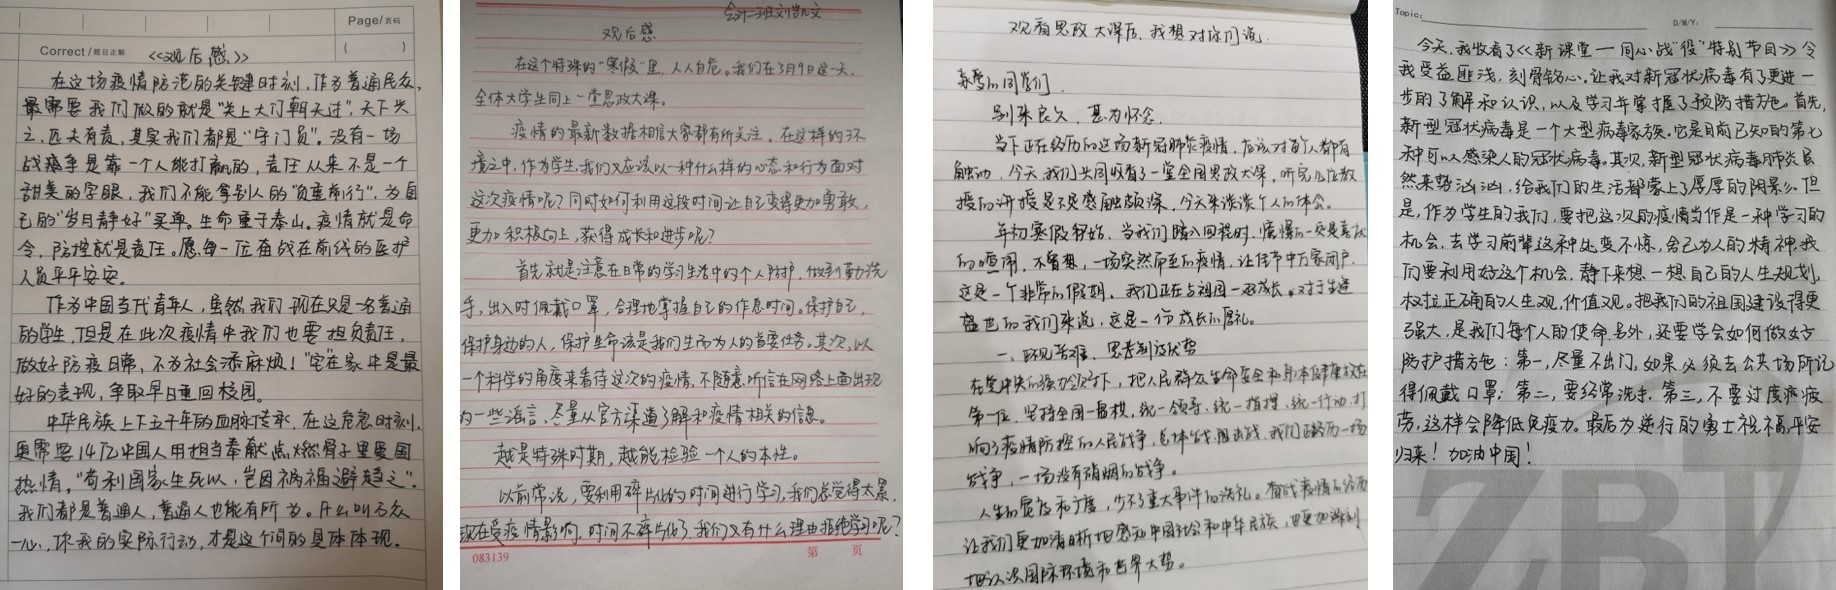 Page/页码
Correct/题目正解
( )
《观后感》
在这场疫情防范的关键时刻，作为普通民众，
最需要我们做的就是"关上大门朝天过"，天下兴
亡，匹夫有责，其实我们都是"守门员"。没有一场
战争是靠一个人能打赢的，责任从来不是一个
甜美的字眼，我们不能拿别人的"负重前行"，为自
己的"岁月静好"买单。生命重于泰山。疫情就是命
令，防控就是责任。愿每一位奋战在前线的医护
人员平平安安。
作为中国当代青年人，虽然我们现在只是一名普通
的学生，但是在此次疫情中我们也要担负责任，
做好防疫日常，不为社会添麻烦！"宅"在家中是最
好的表现，争取早日重回校园。
中华民族上下五千年的血脉传承，在这危急时刻，
更需要14亿中国人用担当奉献点燃骨子里爱国
热情，"苟利国家生死以，岂因祸福避趋之"。
我们都是普通人，普通人也能有所为。什么叫万众
一心，你我的实际行动，才是这个词的具体体现。
会计二班刘凯文
观后感
在这个特殊的"寒假"里，人人自危。我们在3月9日这一天，
全体大学生同上一堂思政大课。
疫情的最新数据相信大家都有所关注。在这样的环
境之中，作为学生，我们又应该以一种什么样的心态和行为面对
这次疫情呢？同时如何利用这段时间让自己变得更加勇敢，
更加积极向上，获得成长和进步呢？
首先就是注意在日常的学习生活中的个人防护，做到勤洗
手，出入时佩戴口罩，合理地掌握自己的作息时间。保护自己，
保护身边的人，保护生命该是我们生而为人的首要任务。其次，以
一个科学的角度来看待这次的疫情，不随意听信在网络上面出现
的一些谣言，尽量从官方渠道了解和疫情相关的信息。
越是特殊时期，越能检验一个人的本性。
以前常说，要利用碎片化的时间进行学习，我们总觉得太累，
现在受疫情影响，时间不碎片化了，我们又有什么理由拒绝学习呢？
083139
第 页
观看思政大课后，我想对你们说
亲爱的同学们
别来良久，甚为怀念
当下正在经历的这场新冠肺炎疫情，应该对每个人都有
触动，今天我们共同收看了一堂全国思政大课，听完几位教
授的讲授是不是感触颇深，今天来谈谈个人的体会。
年初寒假开始，当我们踏入回程时，憧憬的一定是春节
的喧闹，不曾想，一场突然而至的疫情，让佳节中万家闭户，
这是一个非常的假期，我们正在与祖国一起成长，对于生逢
盛世的我们来说，这是一份成长的厚礼。
在党中央的强力领导下，把人民群众生命安全和身体健康放在
第一位，坚持全国一盘棋，统一领导、统一指挥、统一行动，打
响了疫情防控的人民战争，总体战，阻击战，我们正经历一场
战争，一场没有硝烟的战争。
人生的宽度和广度，少不了重大事件的洗礼。
让我们更加清晰地感知中国社会和中华民族，也更加深刻
地认识国际环境和世界大势。
Topic:
D/M/Y:
今天，我收看了《新课堂—同心战"役"特别节目》令
我受益匪浅，刻骨铭心，让我对新冠状病毒有了更进一
步的了解和认识，以及学习并掌握了预防措施。首先，
新型冠状病毒是一个大型病毒家族。它是目前已知的第七
种可以感染人的冠状病毒。其次，新型冠状病毒肺炎虽
然来势汹汹，给我们的生活都蒙上了厚厚的阴影。但
是，作为学生的我们，要把这次的疫情当作是一种学习的
机会，去学习前辈这种处变不惊，舍己为人的精神，我
们要利用好这个机会，静下来想一想自己的人生规划，
树立正确的人生观，价值观。把我们的祖国建设得更
强大，是我们每个人的使命，另外，还要学会如何做好
防护措施：第一，尽量不出门，如果必须去公共场所记
得佩戴口罩；第二，要经常洗手，第三，不要过度疲
劳，这样会降低免疫力。最后为逆行的勇士祝福，平安
归来！加油中国！